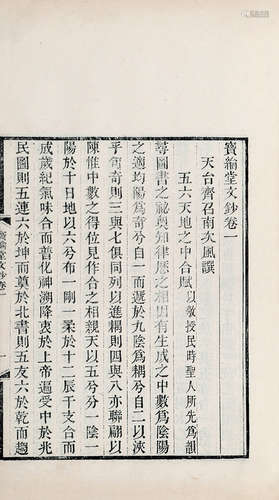 寶綸堂文鈔卷一
天台齊召南次風譔
五六天地之中合賦以敬授民時聖人所先爲韻
尋圖書之祕奧知律歷之相因有生成之中數爲陰陽
之適均陽爲奇兮自一而遞於九陰爲耦兮自二以浹
乎旬奇則三與七俱同列以進耦則四與八亦聯翩以
陳惟中數之得位見作合之相親天以五兮分一陰一
陽於十日地以六兮布一剛一柔於十二辰干支合而
成歲紀氣味合而普化神溯降衷於上帝遍受中於兆
民圖則五連六於坤而莫於北書則五友六於乾而趨
寶綸堂文鈔卷一